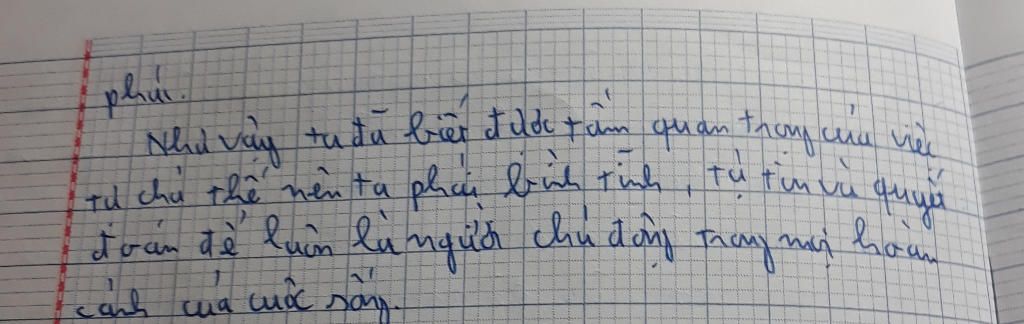 phải.
Như vậy ta đã biết được tầm quan trọng của việc
tự chủ thế nên ta phải bình tĩnh, tự tin và quyết
đoán để luôn là người chủ động trong mọi hoàn
cảnh của cuộc sống.